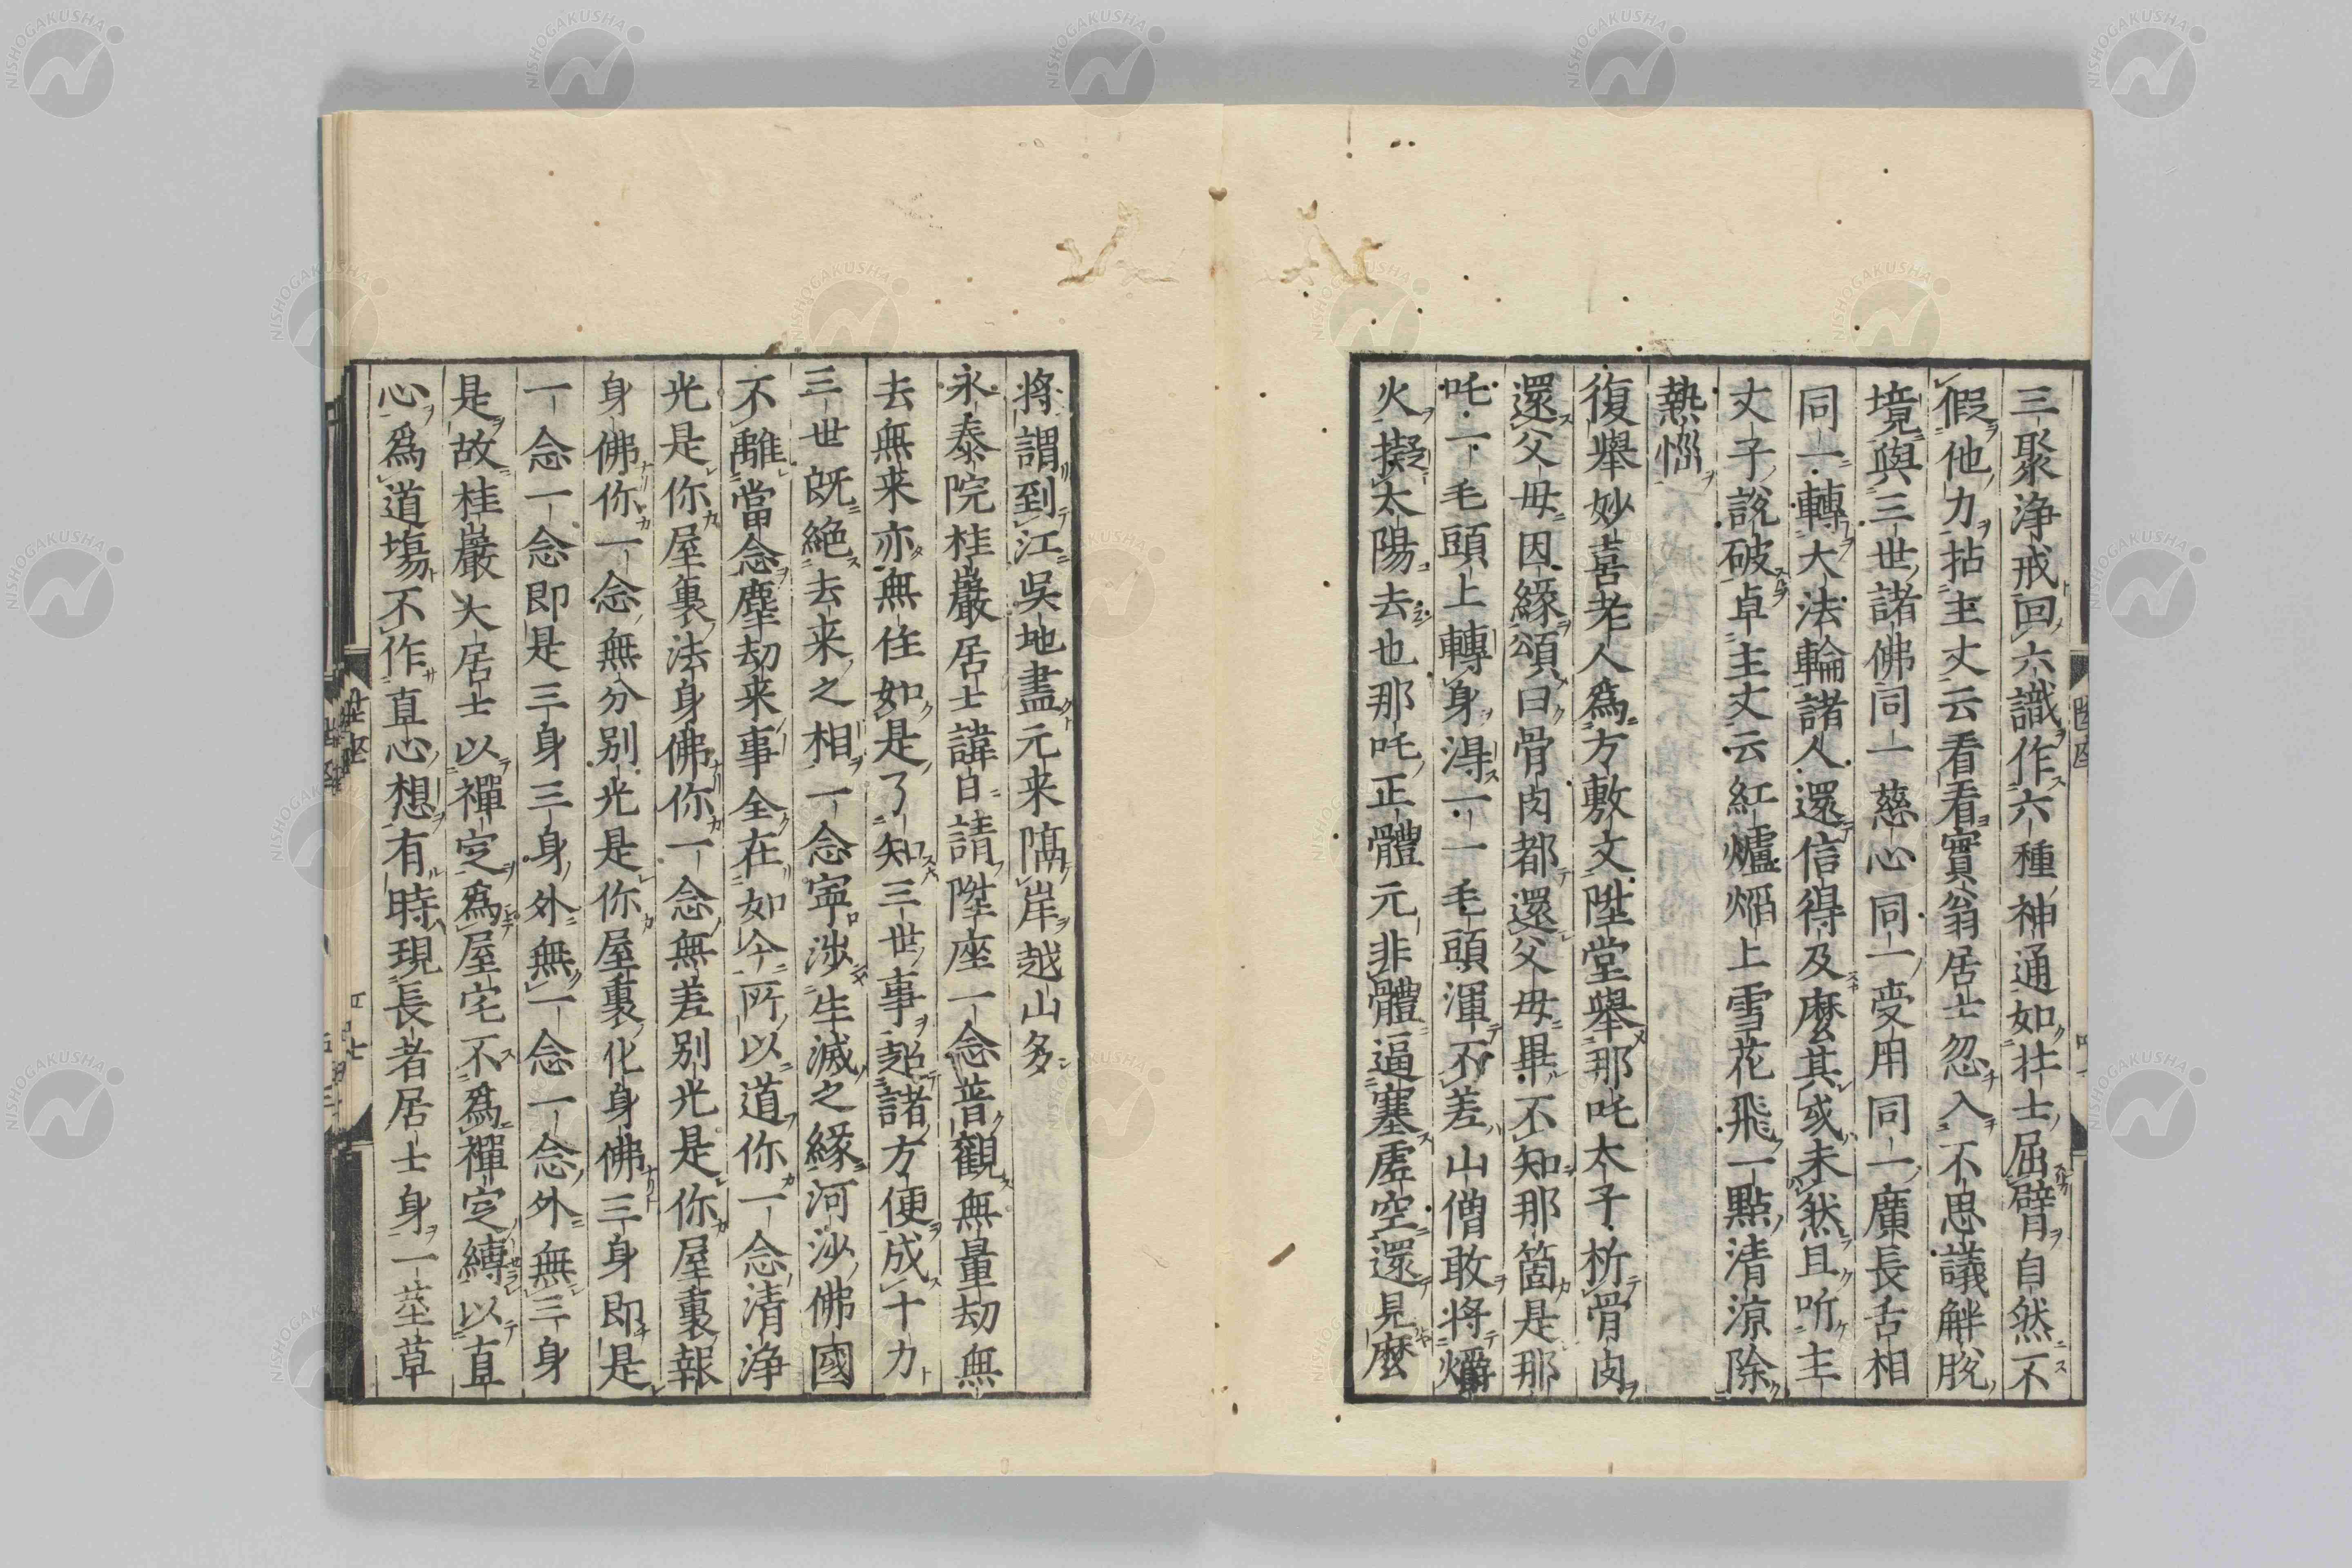 三聚淨戒回六識作六種神通如壯士屈臂自然不
假他力拈主丈云看看實翁居士忽入不思議解脫
境與三世諸佛同一慈心同一受用同一廣長舌相
同一轉大法輪諸人還信得及麼其或未然且听主
丈子說破卓主丈云紅爐焰上雪花飛一點清涼除
熱惱
復舉妙喜老人爲方敷文陞堂舉那吒太子析骨肉
還父母因緣頌曰骨肉都還父母畢不知那箇是那
吒一毛頭上轉身得一一毛頭渾不差山僧敢將爝
火擬太陽去也那吒正體元非體逼塞虛空還見麼
將謂到江吳地盡元来隔岸越山多
永泰院桂巖居士諱日請陞座一念普觀無量劫無
去無来亦無住如是了知三世事超諸方便成十力
三世既絕去来之相一念寧涉生滅之緣河沙佛國
不離當念塵劫来事全在如今所以道你一念清淨
光是你屋裏法身佛你一念無差別光是你屋裏報
身佛你一念無分別光是你屋裏化身佛三身即是
一念一念即是三身三身外無一念一念外無三身
是故桂巖大居士以禪定爲屋宅不爲禪定縛以直
心爲道場不作直心想有時現長者居士身一莖草
NISHOGAKUSHA